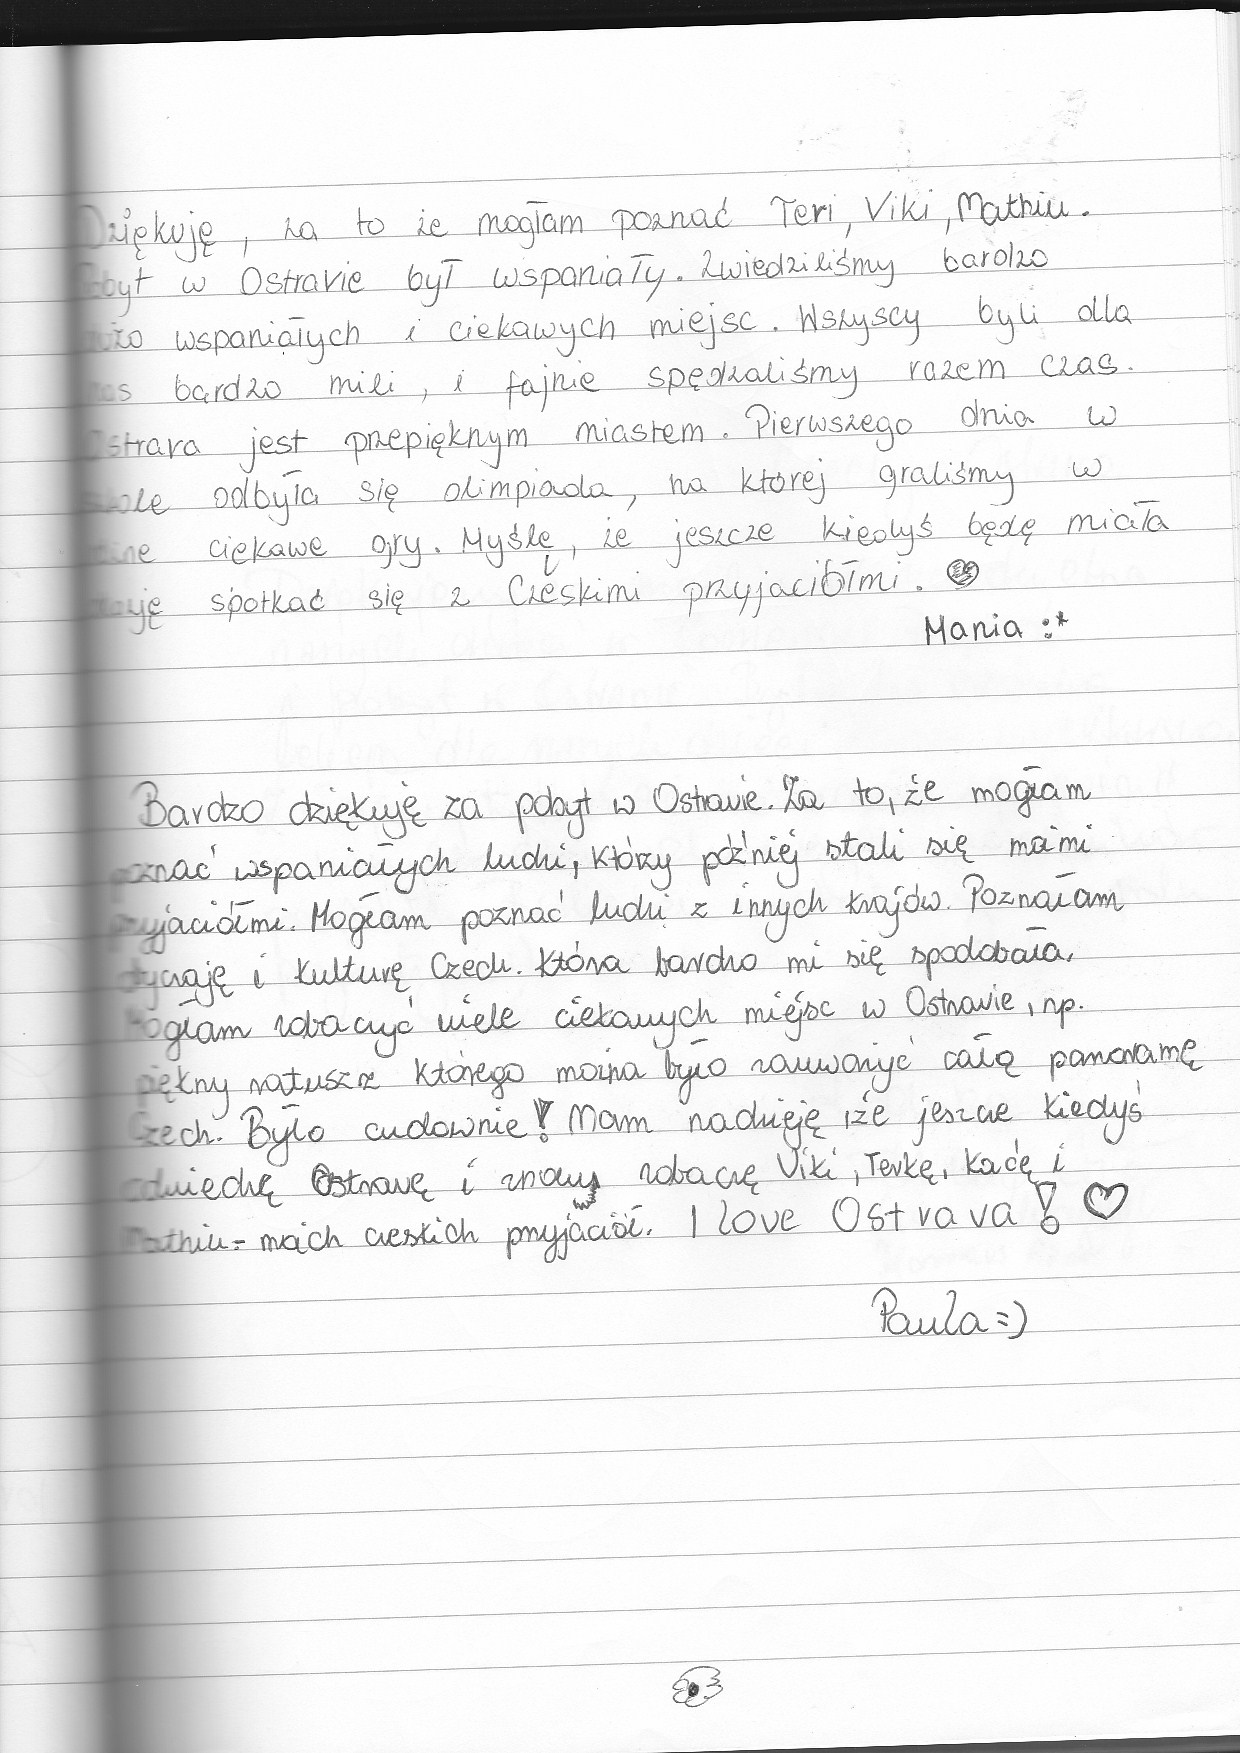 Dziękuję, za to że mogłam poznać Teri, Viki, Mathiu.
Pobyt w Ostravie był wspaniały. Zwiedziliśmy bardzo
dużo wspaniałych i ciekawych miejsc. Wszyscy byli dla
nas bardzo mili, i fajnie spędzaliśmy razem czas.
Ostrava jest przepięknym miastem. Pierwszego dnia w
szkole odbyła się olimpiada, na której graliśmy w
ciekawe gry. Myślę, że jeszcze kiedyś będę miała
okazję spotkać się z Czeskimi przyjaciółmi.
Mania :*
Bardzo dziękuję za pobyt w Ostravie. Za to, że mogłam
poznać wspaniałych ludzi, którzy później stali się moimi
przyjaciółmi. Mogłam poznać ludzi z innych krajów. Poznałam
i kulturę Czech. Która bardzo mi się spodobała.
Mogłam zobaczyć wiele ciekawych miejsc w Ostravie, np.
piękny ratusz z którego można było zauważyć całą panoramę
Czech. Było cudownie! Mam nadzieję że jeszcze kiedyś
odwiedzę Ostravę i znowu zobaczę Viki, Terkę, Kaćę i
Mathiu - moich czeskich przyjaciół. I love Ostrava! ♡
Paula =)